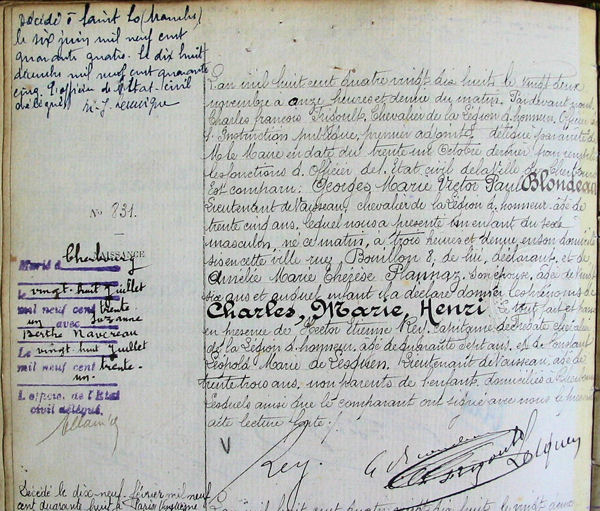 Décédé à Saint Lo (Manche)
le six juin mil neuf cent
quarante quatre. Le dix huit
décembre mil neuf cent quarante
cinq. L'officier de l'Etat-civil
délégué
No 831.
NAISSANCE
Marié à Cherbourg
le vingt-huit Juillet
mil neuf cent trente
un avec Suzanne
Berthe
Le vingt huit Juillet
mil neuf cent trente-
un.
L'officier de l'Etat
civil délégué.
L'an mil huit cent quatre vingt dix huit le vingt deux
novembre à onze heures et demie du matin, Pardevant nous
Charles François Chevalier de la Légion d'honneur, Officier
d'Instruction publique, premier adjoint délégué par arrêté de
Mr le Maire en date du trente un Octobre dernier pour remplir
les fonctions d'Officier de l'Etat civil de la Ville de Cherbourg
Est comparu: Georges Marie Victor Paul Blondeau
Lieutenant de Vaisseau, chevalier de la Légion d'honneur, âgé de
trente cinq ans, lequel nous a présenté un enfant du sexe
masculin, né ce matin, à trois heures et demie, en son domicile
sis en cette ville rue Bouillon 8, de lui, déclarant, et de
Amélie Marie Thérèse Pannaz, Son épouse, âgée de vingt
six ans et auquel enfant il a déclaré donner les prénoms de
Charles, Marie, Henri, Le tout fait en
présence de Hector Etienne Rey, capitaine de frégate, chevalier
de la Légion d'honneur, âgé de quarante sept ans, et de Constant
Léopold Marie de Lesquen, Lieutenant de Vaisseau, âgé de
trente trois ans, non parents de l'enfant, domiciliés à Cherbourg
Lesquels ainsi que le comparant ont signé avec nous le présent
acte lecture faite.
Rey.
Lesquen
Décédé le dix-neuf février mil neuf
cent quarante huit à Paris